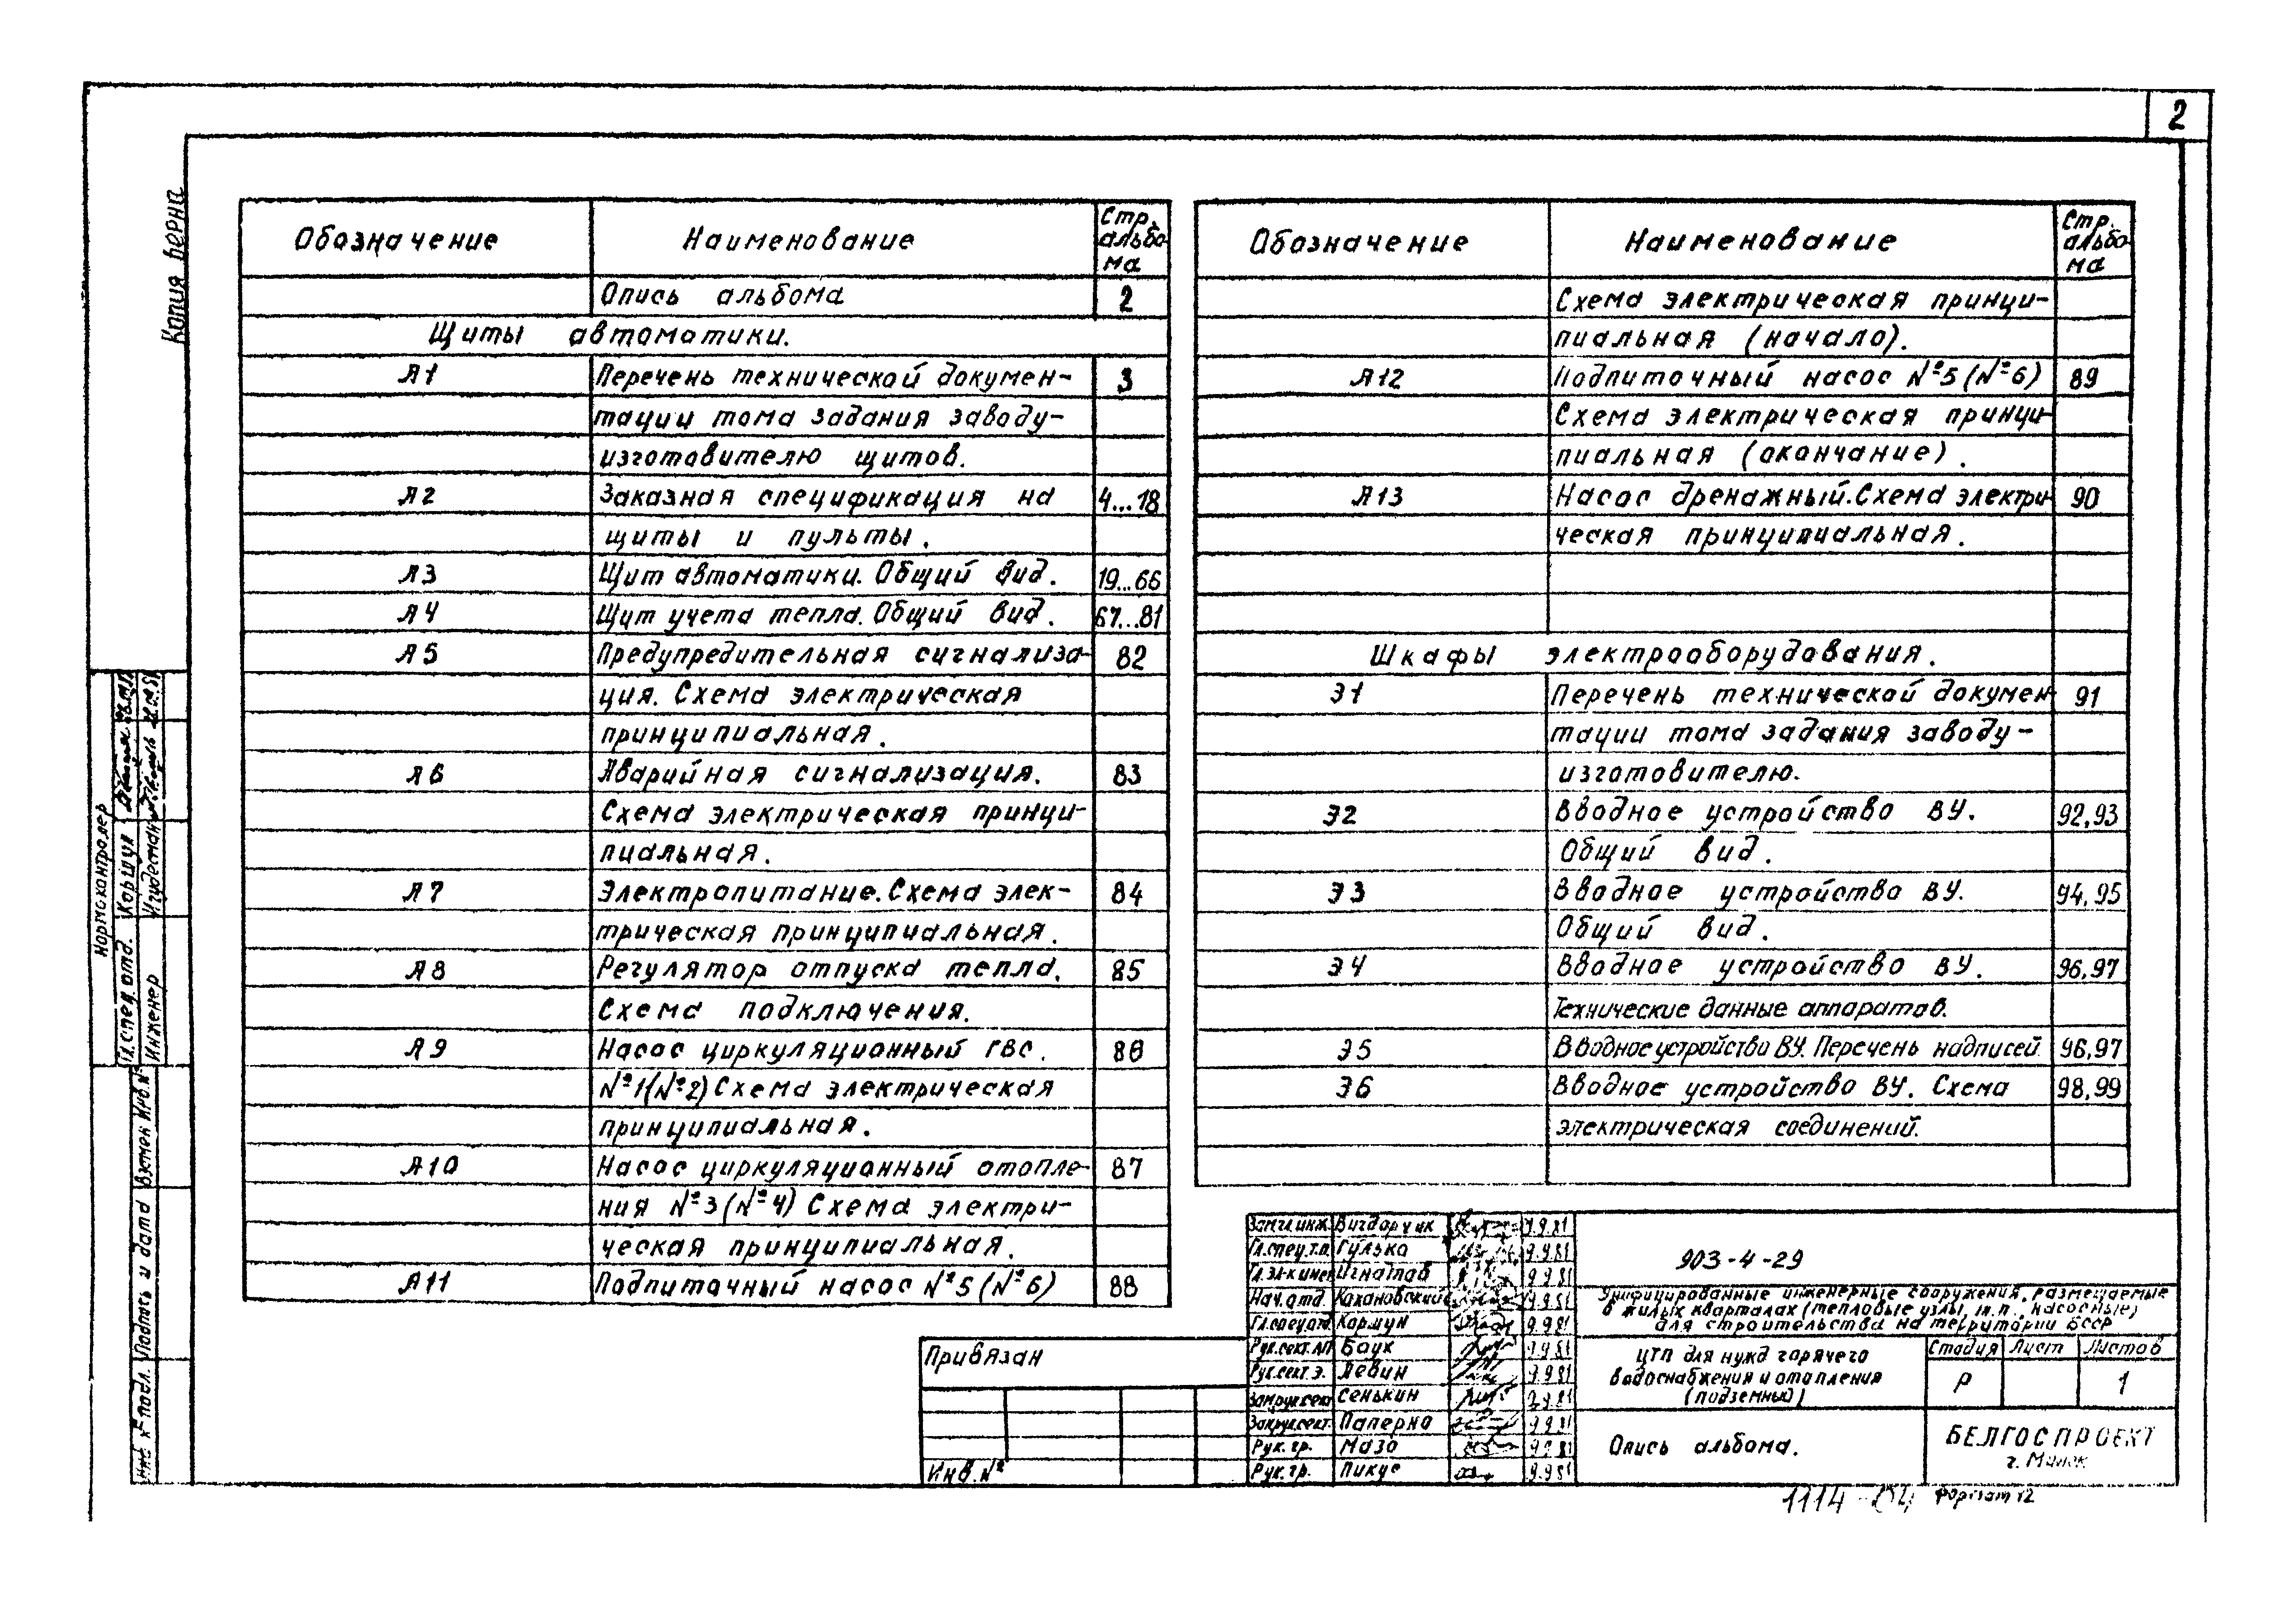 2
Копия верна
Обозначение Наименование Стр. альбо ма
Опись альбома 2
Щиты автоматики.
А1 Перечень технической докумен- 3
тации тома задания заводу-
изготовителю щитов.
А2 Заказная спецификация на 4...18
щиты и пульты.
А3 Щит автоматики. Общий вид. 19...66
А4 Щит учета тепла. Общий вид. 67...81
А5 Предупредительная сигнализа- 82
ция. Схема электрическая
принципиальная.
А6 Аварийная сигнализация. 83
Схема электрическая принци-
пиальная.
А7 Электропитание. Схема элек- 84
трическая принципиальная.
А8 Регулятор отпуска тепла. 85
Схема подключения.
А9 Насос циркуляционный ГВС. 86
№1(№2) Схема электрическая
принципиальная.
А10 Насос циркуляционный отопле- 87
ния №3 (№4) Схема электри-
ческая принципиальная.
А11 Подпиточный насос №5 (№6) 88
Обозначение Наименование Стр. альбо ма
Схема электрическая принци-
пиальная (начало).
А12 Подпиточный насос №5 (№6) 89
Схема электрическая принци-
пиальная (окончание).
А13 Насос дренажный. Схема электри- 90
ческая принципиальная.
Шкафы электрооборудования.
Э1 Перечень технической докумен 91
тации тома задания заводу-
изготовителю.
Э2 Вводное устройство ВУ. 92,93
Общий вид.
Э3 Вводное устройство ВУ. 94,95
Общий вид.
Э4 Вводное устройство ВУ. 96,97
Технические данные аппаратов.
Э5 Вводное устройство ВУ. Перечень надписей 96,97
Э6 Вводное устройство ВУ. Схема 98,99
электрическая соединений.
Нормоконтролер
Гл.спец.отд. Коршун
Инженер
Взамен Инв.№
Подпись и дата
Инв №подл.
Привязан
Инв.№
Зам гл.инж. Вигдорчик 9.9.81
Гл.спец.т.п. Гулько 9.9.81
Игнатов 9.9.81
Нач.отд. Кахановский 9.9.81
Гл.спец.отд. Коршун 9.9.81
Рук.сект. Баук 9.9.81
Рук.сект.э. Левин 9.9.81
Зам.рук.сект Сенькин 9.9.81
Зам.рук.сект. Паперно 9.9.81
Рук.гр. Мазо 9.9.81
Рук.гр. Пикус 9.9.81
903-4-29
Унифицированные инженерные сооружения, размещаемые
в жилых кварталах (тепловые узлы, т.п., насосные)
для строительства на территории БССР
ЦТП для нужд горячего
водоснабжения и отопления
(подземный)
Стадия Лист Листов
Р 1
Опись альбома.
БЕЛГОСПРОЕКТ
г. Минск
1114-04 Формат 12